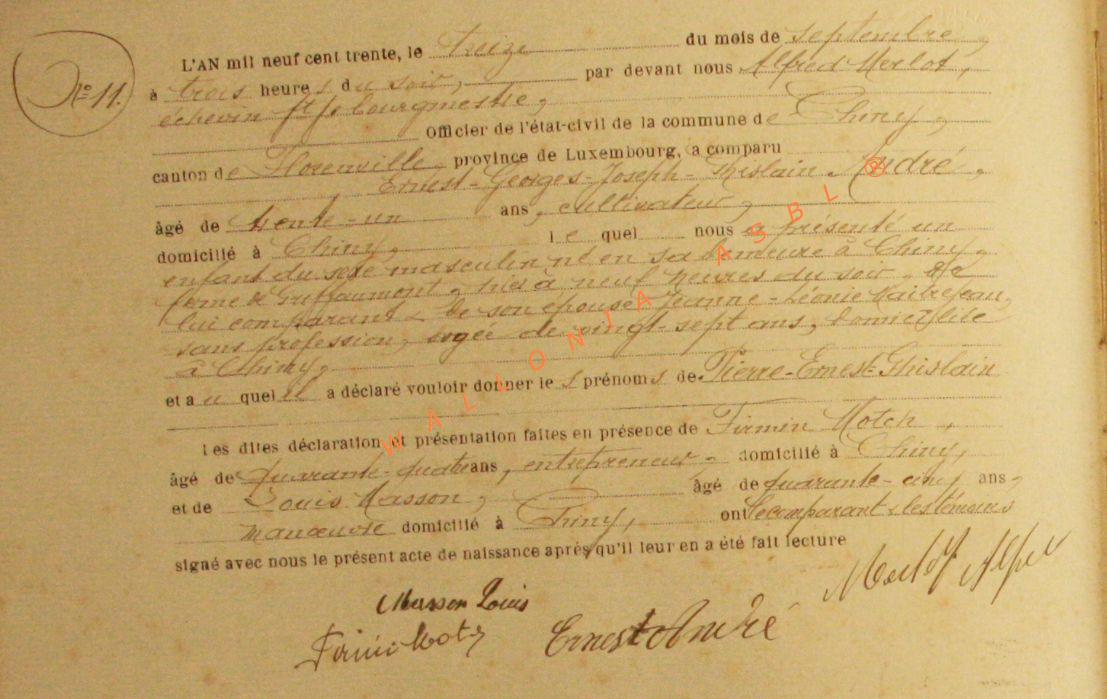 N° 11.
L'AN mil neuf cent trente, le treize du mois de septembre,
à trois heures du soir, par devant nous Alfred Merlot,
échevin ff bourgmestre,
Officier de l'état-civil de la commune de Chiny,
canton de Florenville, province de Luxembourg, a comparu
Ernest-Georges-Joseph-Ghislain André,
âgé de trente-un ans, cultivateur,
domicilié à Chiny, le quel nous a présenté un
enfant du sexe masculin né en sa demeure à Chiny,
ferme de à neuf heures du soir, de
lui comparant & de son épouse Jeanne-Léonie Maitrejean,
sans profession, âgée de vingt-sept ans, domiciliée
à Chiny,
et au quel il a déclaré vouloir donner les prénoms de Pierre-Ernest-Ghislain
Les dites déclaration et présentation faites en présence de Firmin Motch,
âgé de quarante-quatre ans, entrepreneur, domicilié à Chiny,
et de Louis Masson, âgé de quarante-cinq ans,
manœuvre domicilié à Chiny, ont le comparant & les témoins
signé avec nous le présent acte de naissance après qu'il leur en a été fait lecture
Masson Louis
Firmin Motch
Ernest André
Merlot Alfred
WALLONIA ASBL ®